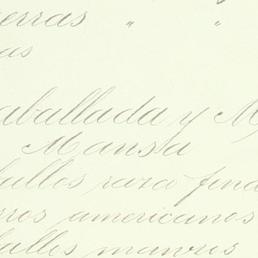 erras " "
as
aballada y M
Mansa
ballos para finca
rros americanos
ballos manros